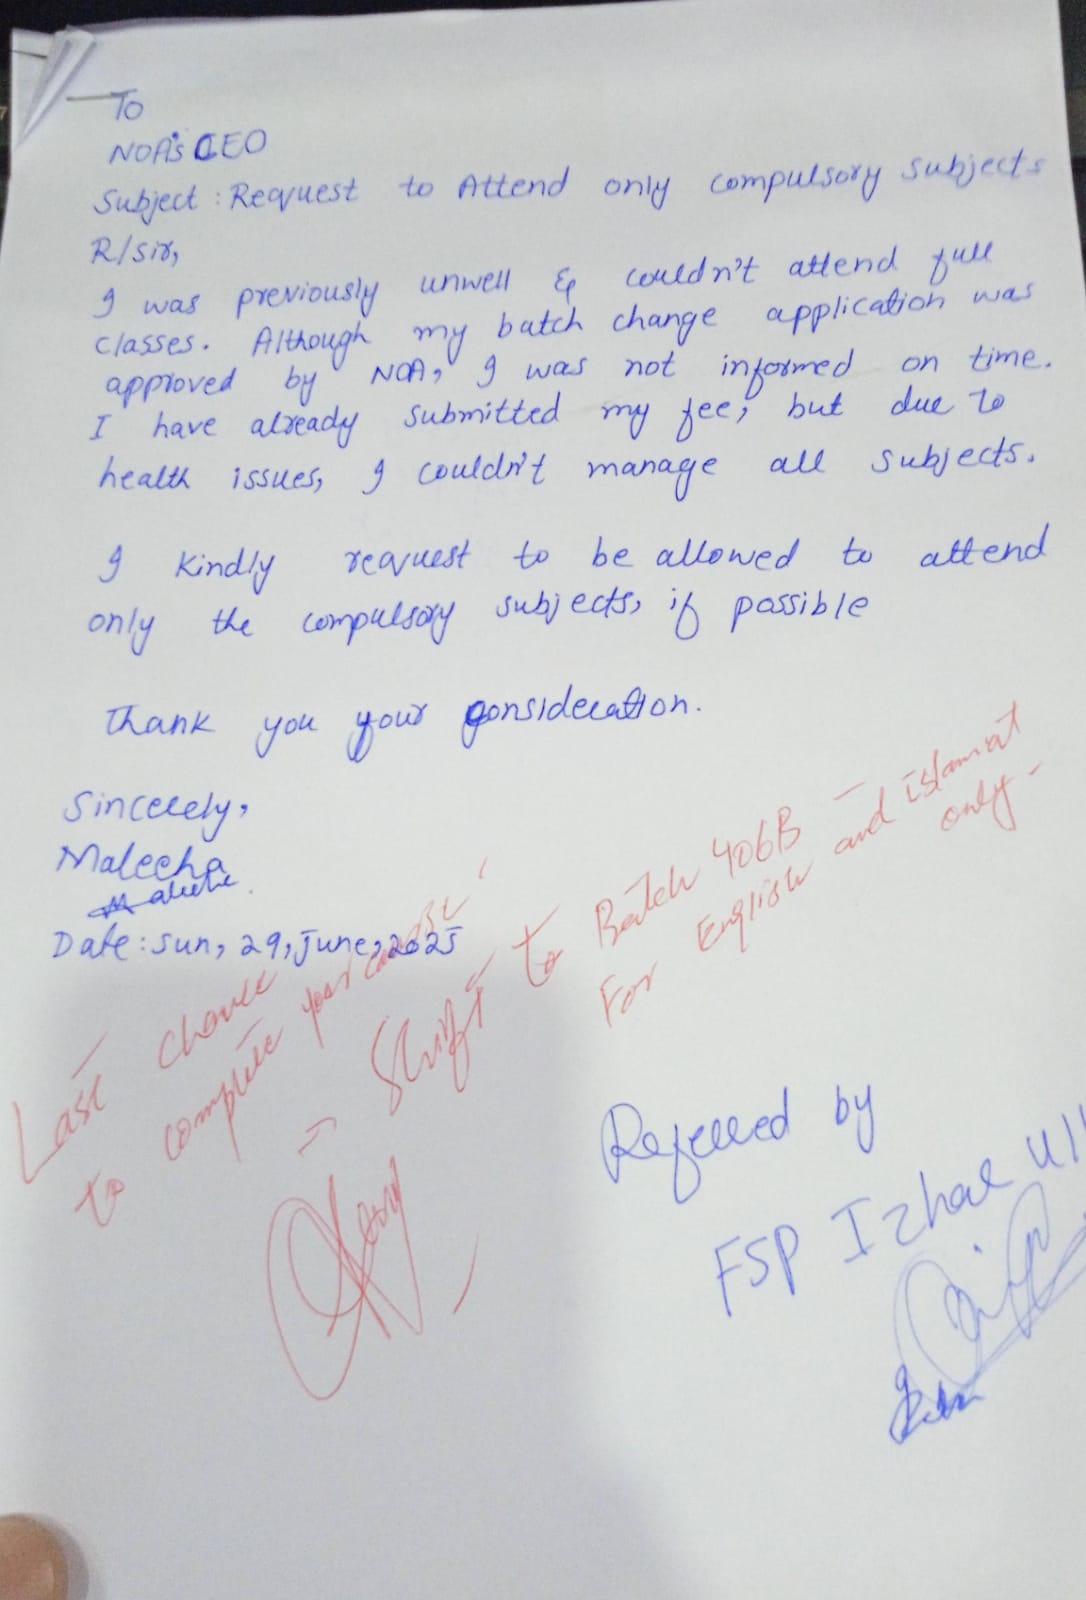 To
NOA's CEO
Subject : Request to Attend only compulsory subjects
R/sir,
I was previously unwell & couldn't attend full
classes. Although my batch change application was
approved by NOA, I was not informed on time.
I have already submitted my fee, but due to
health issues, I couldn't manage all subjects.
I kindly request to be allowed to attend
only the compulsory subjects, if possible
Thank you your consideration.
Sincerely,
Maleeha
Maleeha
Date : Sun, 29, June, 2025
Last chance
to complete your course!
→ Shift to Batch 406B -
For English and islamiat
only -
Referred by
FSP Izhar Ull